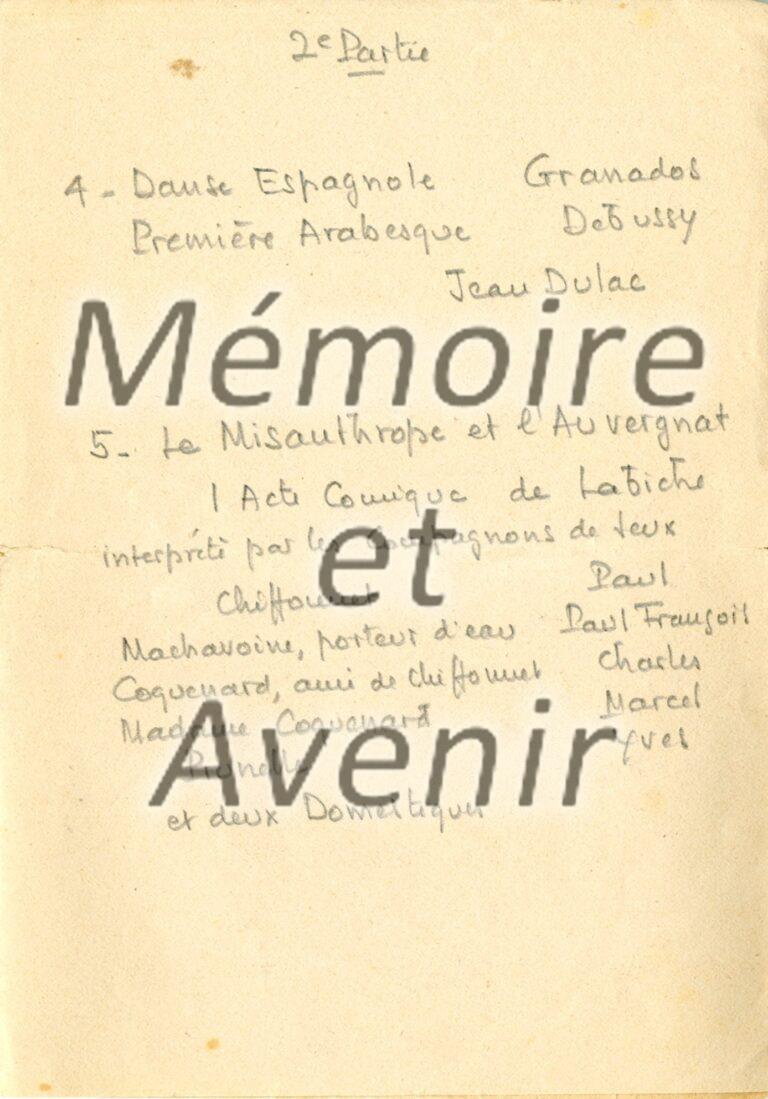 2e Partie
4 - Danse Espagnole Granados
Première Arabesque Debussy
Jean Dulac
Mémoire
5 - Le Misanthrope et l'Auvergnat
1 Acte Comique de Labiche
interprété par les Compagnons de Jeux
et
Chiffonnet Paul
Machavoine, porteur d'eau Paul François
Coquenard, ami de Chiffonnet Charles
Madame Coquenard Marcel
Prunette Yves
Avenir
et deux Domestiques